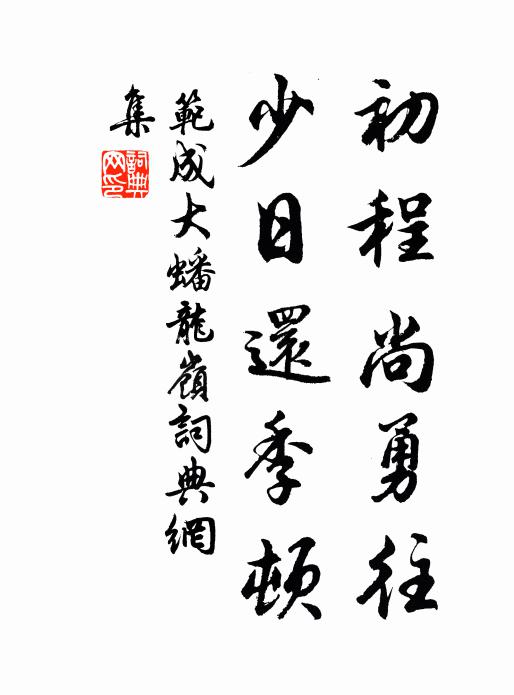 初程尚勇往
少日還委頓
範成大蟠龍嶺詞典網
集
詞典
网印